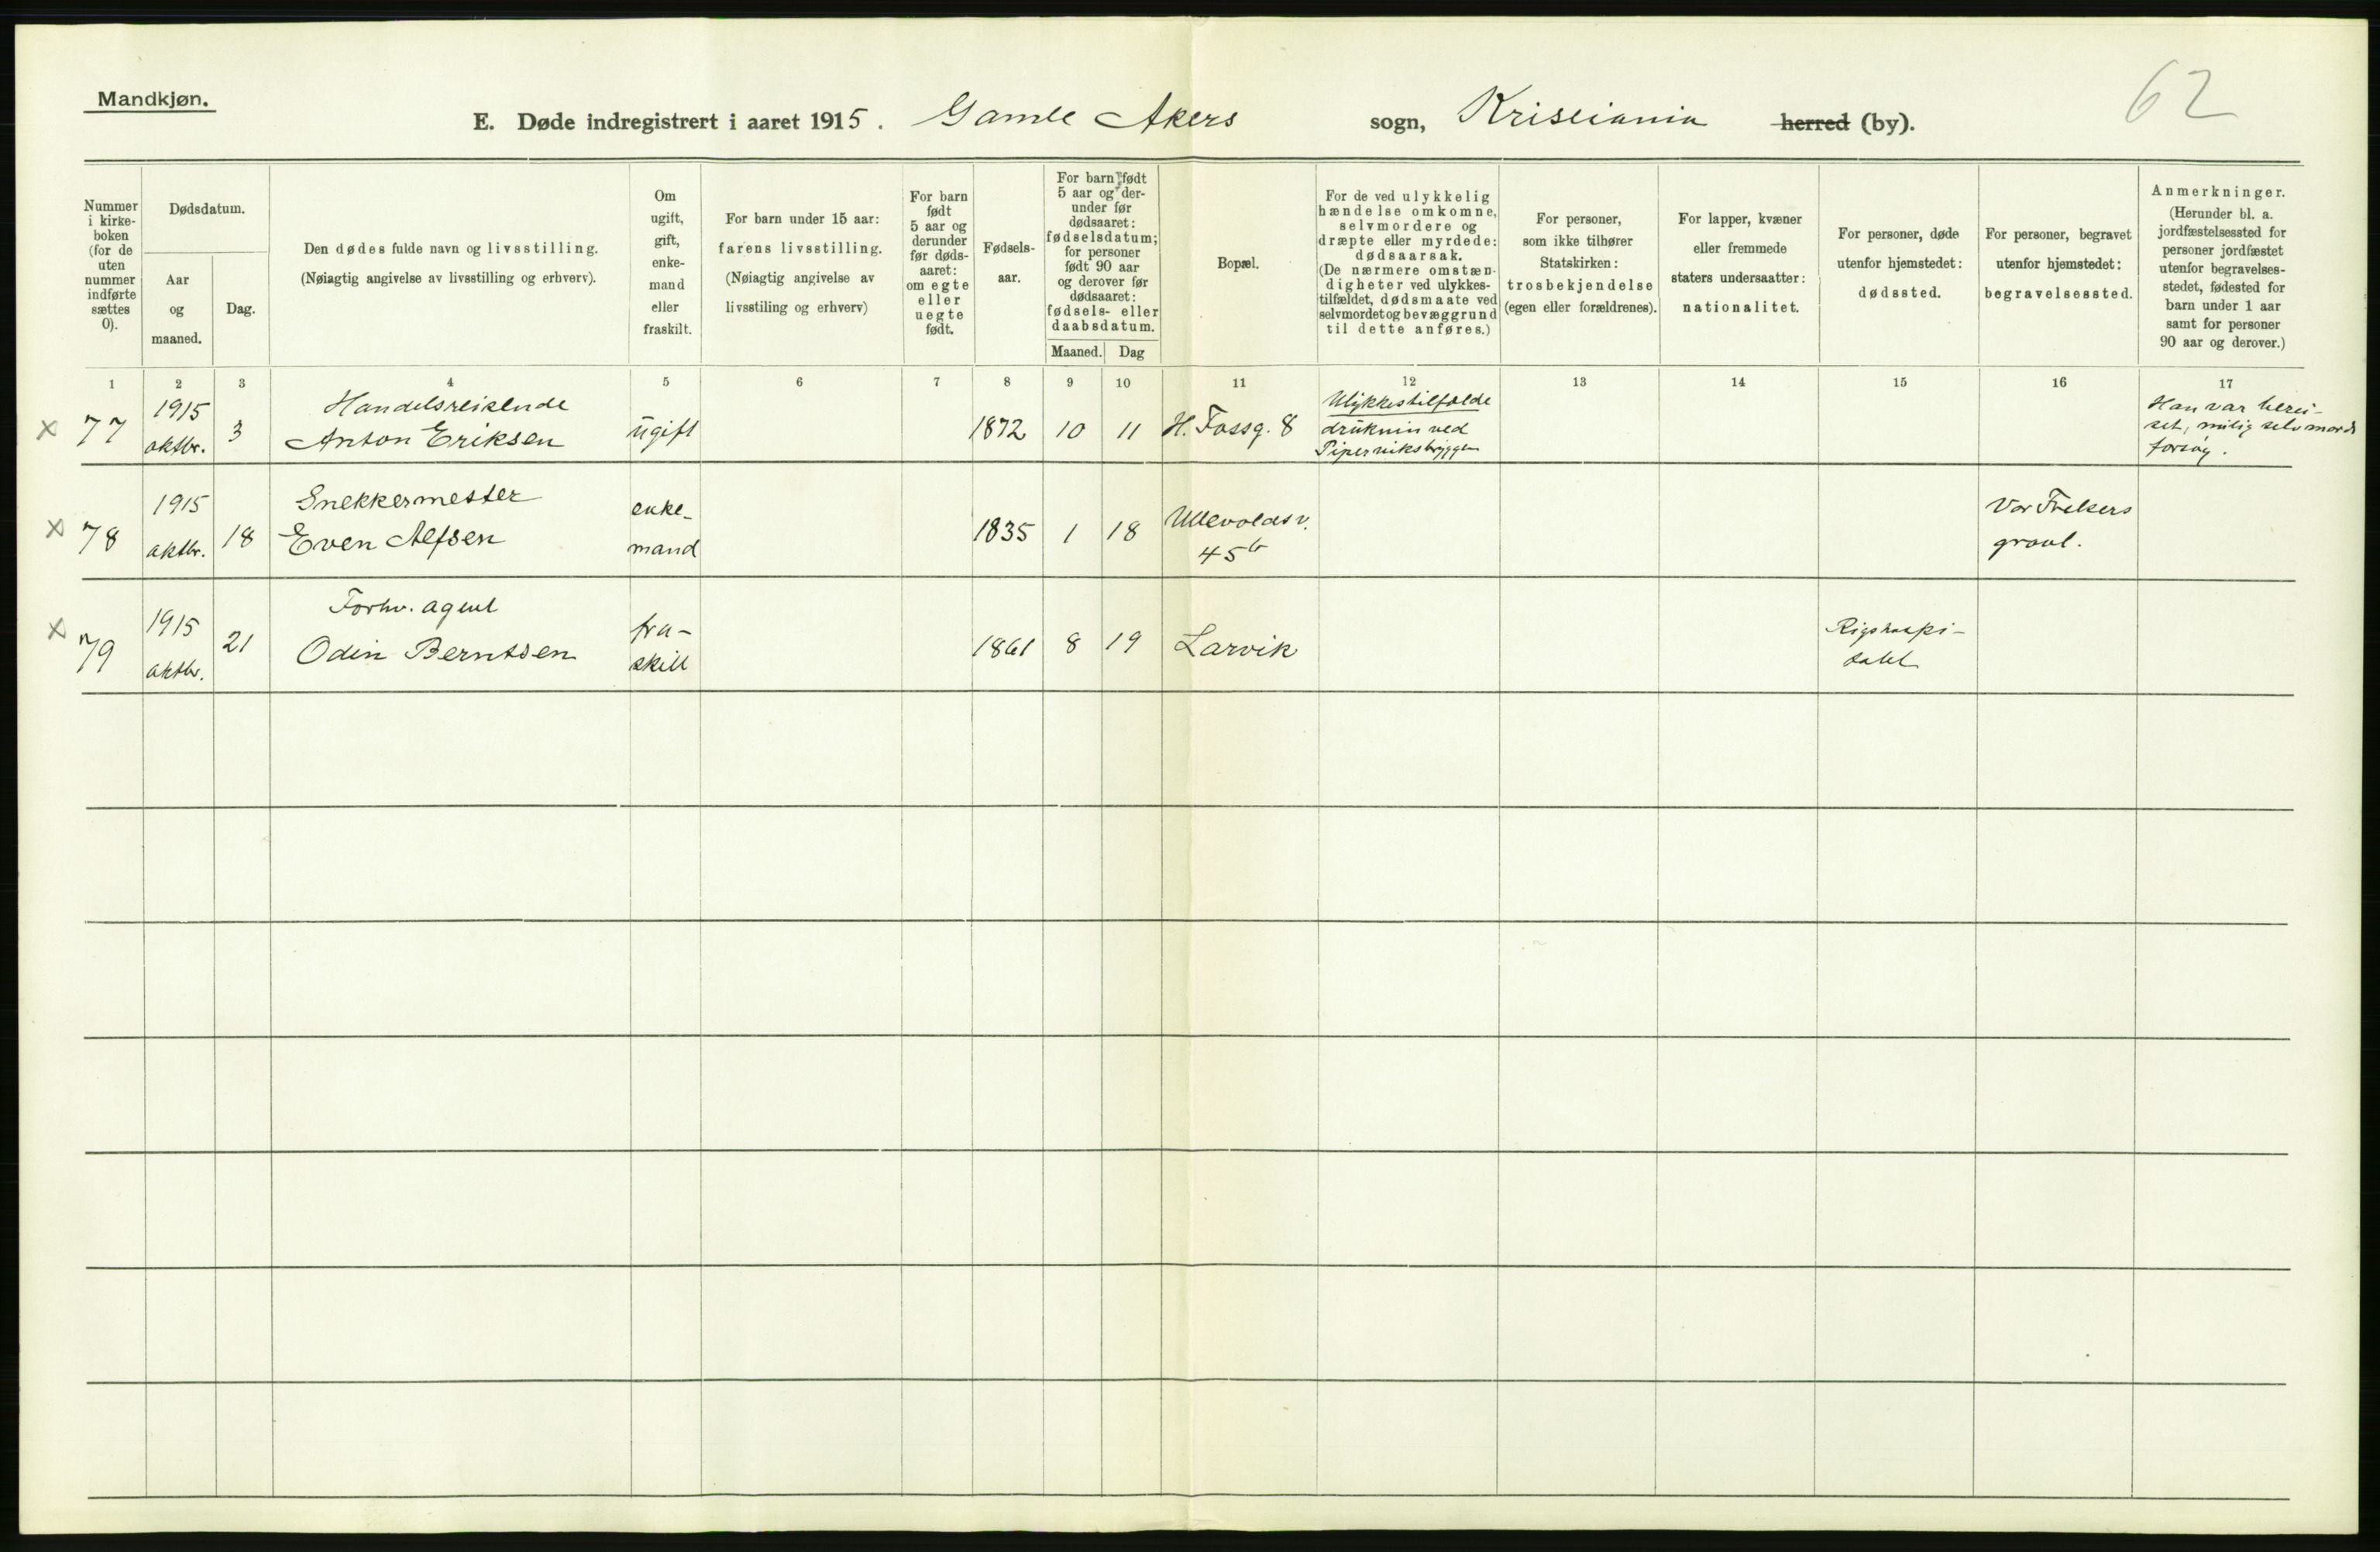 Mandkjøn.
E. Døde indregistrert i aaret 1915. Gamle Akers sogn, Kristiania herred (by).
62
Nummer i kirke-boken (for de uten nummer indførte sættes 0).
Dødsdatum.
Aar og maaned.
Dag.
Den dødes fulde navn og livsstilling.
(Nøiagtig angivelse av livsstilling og erhverv).
Om ugift, gift, enke-mand eller fraskilt.
For barn under 15 aar:
farens livsstilling.
(Nøiagtig angivelse av
livsstiling og erhverv)
For barn født 5 aar og derunder før døds-aaret: om egte eller uegte født.
Fødsels-aar.
For barn født 5 aar og der-under før dødsaaret: fødselsdatum; for personer født 90 aar og derover før dødsaaret: fødsels- eller daabsdatum.
Maaned. Dag
Bopæl.
For de ved ulykkelig hændelse omkomne, selvmordere og dræpte eller myrdede: dødsaarsak. (De nærmere omstæn-digheter ved ulykkes-tilfældet, dødsmaate ved selvmordet og bevæggrund til dette anføres.)
For personer, som ikke tilhører Statskirken: trosbekjendelse (egen eller forældrenes).
For lapper, kvæner eller fremmede staters undersaatter: nationalitet.
For personer, døde utenfor hjemstedet: dødssted.
For personer, begravet utenfor hjemstedet: begravelsessted.
Anmerkninger.
(Herunder bl. a. jordfæstelsessted for personer jordfæstet utenfor begravelses-stedet, fødested for barn under 1 aar samt for personer 90 aar og derover.)
1 2 3 4 5 6 7 8 9 10 11 12 13 14 15 16 17
x 77 1915 oktbr. 3 Handelsreisende Anton Eriksen ugift 1872 10 11 H. Fossg. 8 Ulykkestilfælde druknin ved Piperviksbryggen Han var selvmords forsøg.
x 78 1915 oktbr. 18 Snekkermester Even Alfsen enke-mand 1835 1 18 Ullevoldsv. 45b Vor Frelsers gravl.
x 79 1915 oktbr. 21 Forhv. agent Odin Berntsen fra-skilt 1861 8 19 Larvik Rigshospi-talet